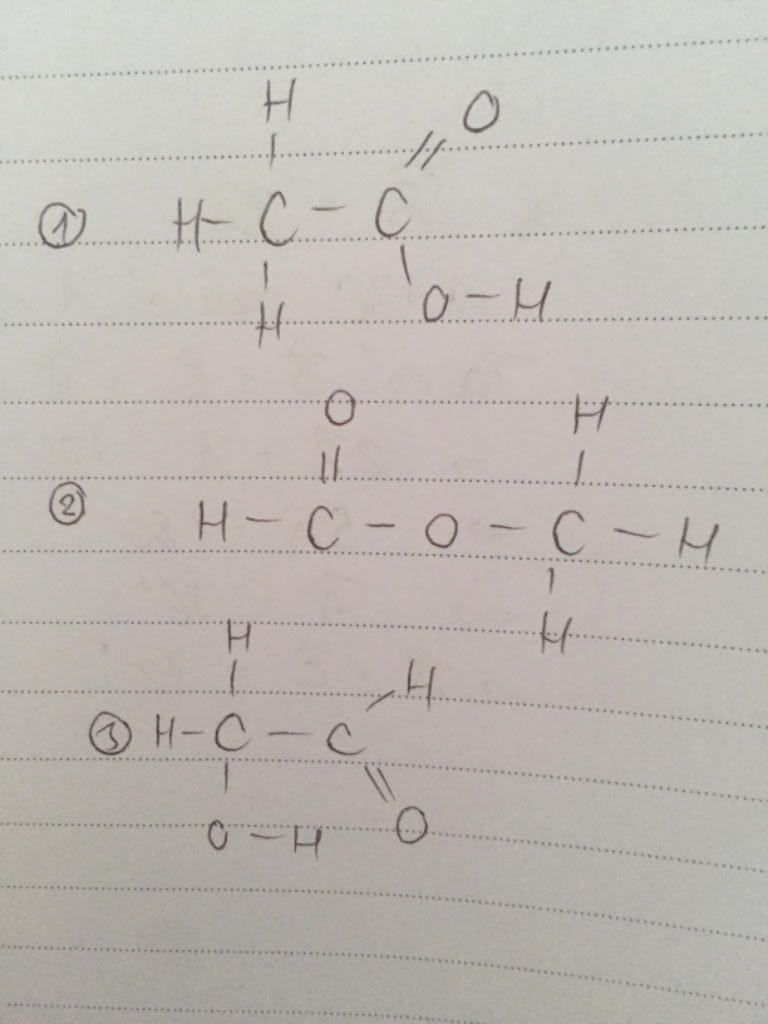 H O
① H - C - C
H O - H
O H
② H - C - O - C - H
H
H H
③ H - C - C
O - H O